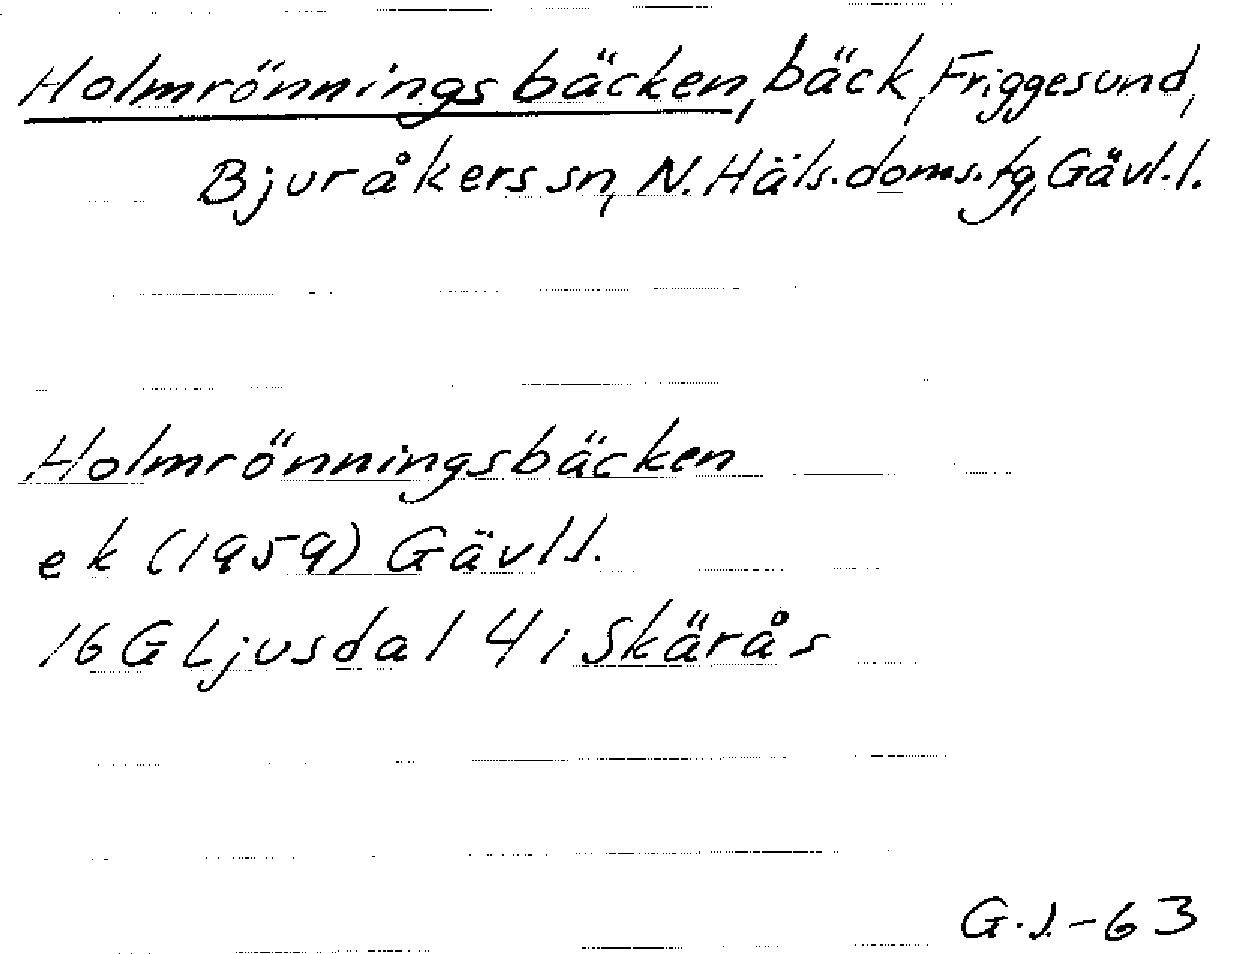 Holmrönningsbäcken, bäck, Friggesund,
Bjuråkers sn, N. Häls. doms. fg, Gävl. l.
Holmrönningsbäcken
ek (1959) Gävl l.
16 G Ljusdal 4 i Skärås
G. J. - 63